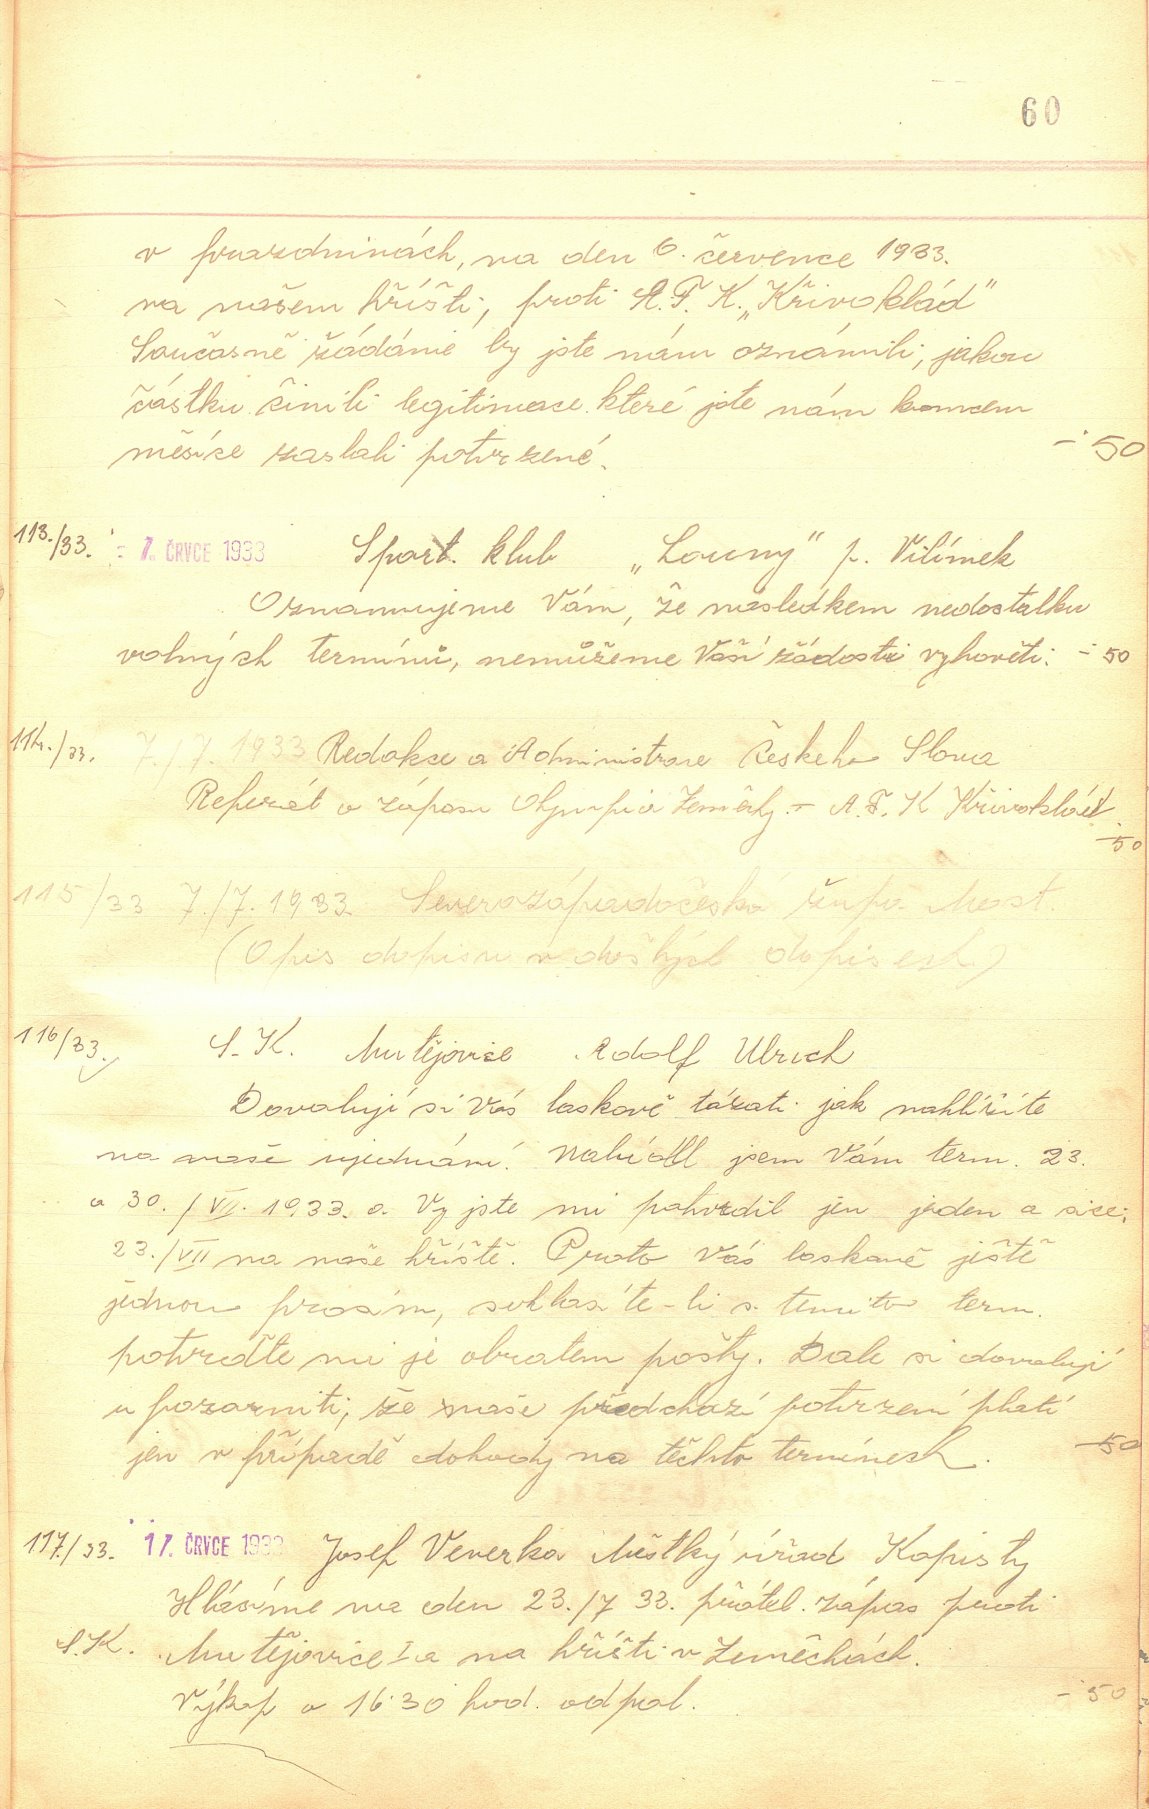 60
v prazdninách, na den 6. července 1933.
na našem hřišti, proti A.F.K. „Křivoklád"
Současně žádáme by jste nám oznámili, jakou
částku činili legitimace které jste nám koncem
měsíce zaslali potvrzené.
-·50
113./33. - 7. ČRVCE 1933 Sport. klub „Louny" p. Vilímek
Oznamujeme Vám, že následkem nedostatku
volných termínů, nemůžeme Vaší žádosti vyhověti. -·50
114./33. 7./7. 1933 Redakce a Administrace Českeho Slova
Referát o zápasu Olympia Zeměchy. - A.F.K Křivoklád
-·50
115/33 7./7. 1933. Severozápadočeská župa Most.
(Opis dopisu v došlých dopisech)
116/33. S.K. Mutějovice Adolf Ulrich
Dovoluji si Vás laskavě tázati jak nahlížíte
na naše ujednání. Nabídll jsem Vám term. 23.
a 30./VII. 1933. a Vy jste mi potvrdil jen jeden a sice;
23./VII na naše hřiště. Proto Vás laskavě ještě
jednou prosím, souhlasíte-li s tímto term.
potvrďte mi je obratem pošty. Dale si dovoluji
upozorniti, že naše předchazí potvrzení platí
jen v případě dohody na těchto termínech.
-50
117./33. 17. ČRVCE 1933 Josef Veverka Městký úřad Kopisty
Hlásíme na den 23./7 33. přátel. zápas proti
S.K. Mutějovice I a na hřišti v Zeměchách.
Výkop o 16·30 hod. odpol.
-·50